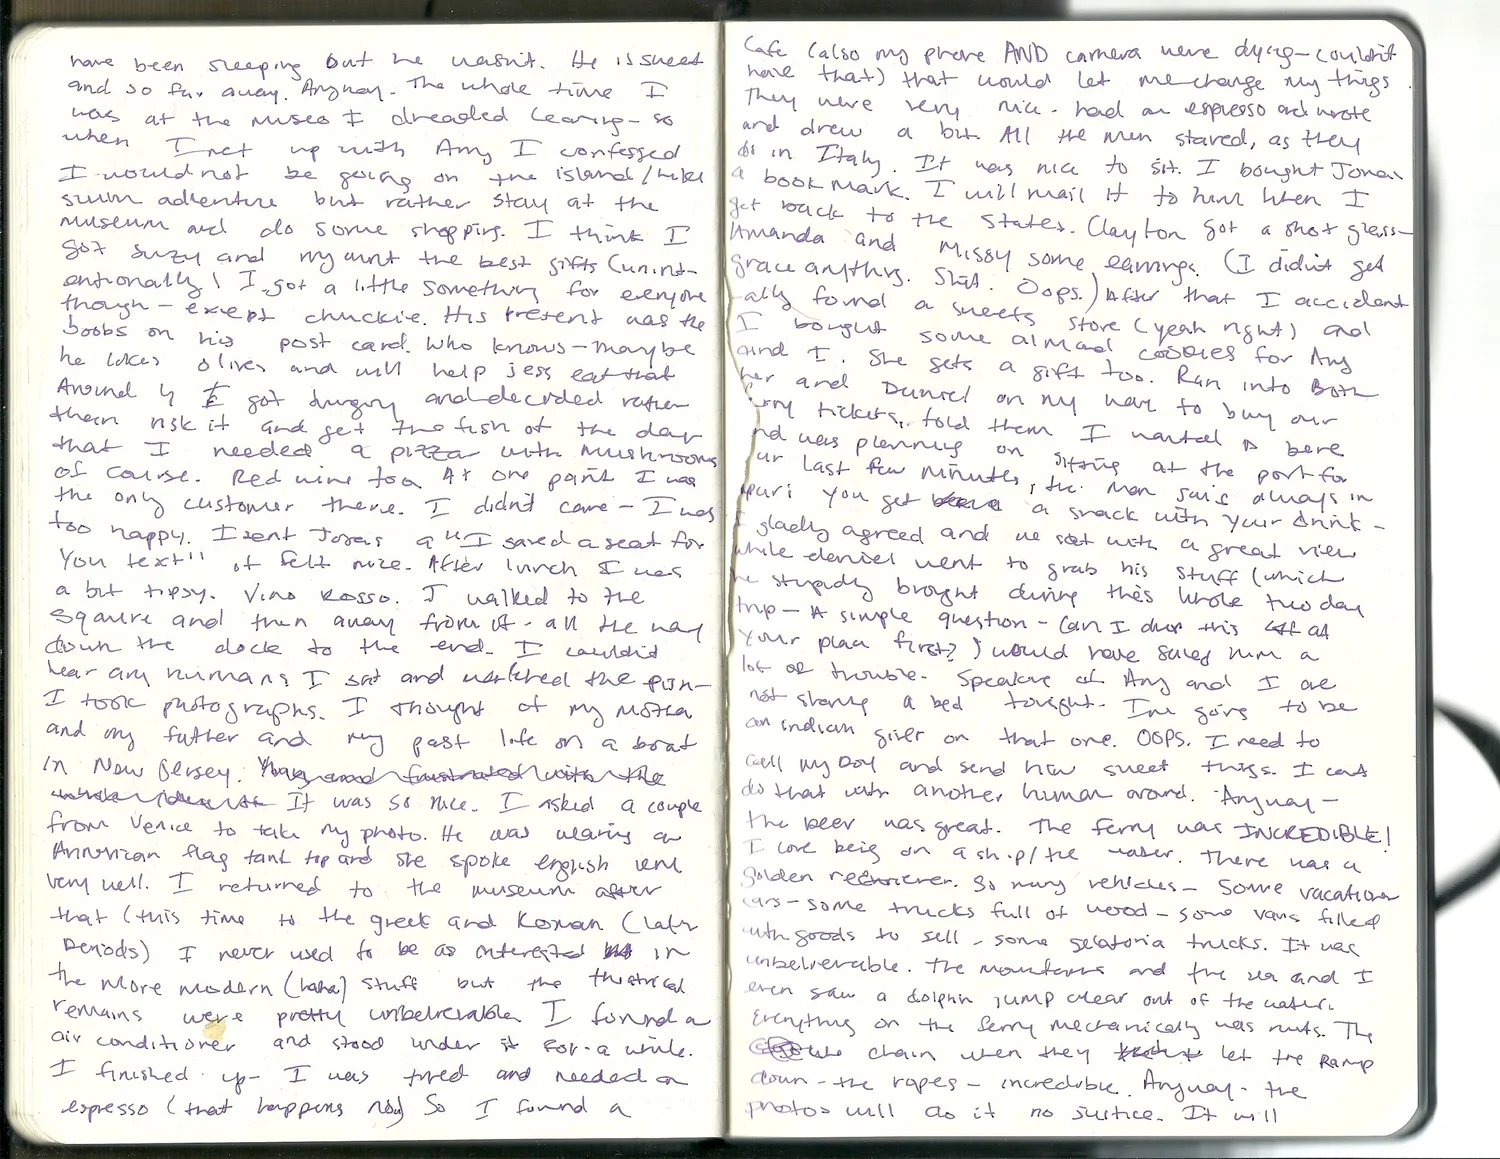 have been sleeping but he wasn't. He is sweet
and so far away. Anyway - The whole time I
was at the museo I dreaded leaving - so
when I met up with Amy I confessed
I would not be going on the island/hike
swim adventure but rather stay at the
museum and do some shopping. I think I
got suzy and my aunt the best gifts (unint-
entionally) I got a little something for everyone
though - except chuckie. His present was the
boobs on his post card. Who knows - maybe
he likes olives and will help jess eat that
Around 4 I got hungry and decided rather
then risk it and get the fish of the day
that I needed a pizza with mushrooms
of course. Red wine too. At one point I was
the only customer there. I didn't care - I was
too happy. I sent Jonas a "I saved a seat for
you text" it felt nice. After lunch I was
a bit tipsy. Vino Rosso. I walked to the
square and then away from it - all the way
down the dock to the end. I couldn't
hear any humans, I sat and watched the
I took photographs. I thought of my mother
and my father and my past life on a boat
in New Jersey.
It was so nice. I asked a couple
from Venice to take my photo. He was wearing an
American flag tank top and she spoke english very
very well. I returned to the museum after
that (this time to the greek and Roman (later
periods) I never used to be as interested in
the more modern (haha) stuff but the theatrical
remains were pretty unbelievable. I found a
air conditioner and stood under it for a while.
I finished up - I was tired and needed an
espresso (that happens now) So I found a
Cafe (also my phone AND camera were dying - couldn't
have that) that would let me charge my things.
They were very nice - had an espresso and wrote
and drew a bit. All the men stared, as they
do in Italy. It was nice to sit. I bought Jonas
a book mark. I will mail it to him when I
get back to the States. Clayton got a shot glass -
Amanda and Missy some earrings. (I didn't get
grace anything. Shit. Oops.) After that I accident
-ally found a sweets store (yeah right) and
I bought some almond cookies for Amy
and I. She gets a gift too. Ran into Both
her and Daniel on my way to buy our
ferry tickets, told them I wanted a beer
and was planning on sitting at the port for
our last few minutes, the man says always in
Lipari you get a snack with your drink -
I gladly agreed and we sat with a great view
while daniel went to grab his stuff (which
he stupidly brought during this whole two day
trip - A simple question - Can I drop this off at
your place first?) would have saved him a
lot of trouble. Speaking of Amy and I are
not sharing a bed tonight. I'm going to be
an indian giver on that one. OOPS. I need to
call my boy and send him sweet things. I cant
do that with another human around. Anyway -
the beer was great. The ferry was INCREDIBLE!
I love being on a ship/the water. There was a
golden retriever. So many vehicles - some vacation
cars - some trucks full of wood - some vans filled
with goods to sell - some gelatoria trucks. It was
unbelievable. The mountains and the sea and I
even saw a dolphin jump clear out of the water.
Everything on the ferry mechanically was nuts. The
chain when they let the ramp
down - the ropes - incredible. Anyway - the
photos will do it no justice. It will